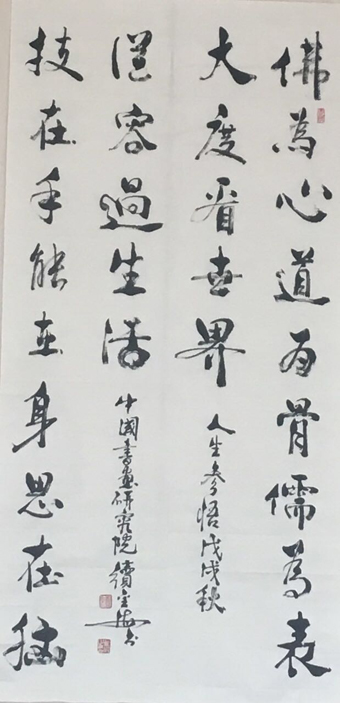 佛為心道为骨儒為表
大度看世界
人生参悟戊戌秋
從容過生活
中國書畫研究院
技在手能在身思在腦